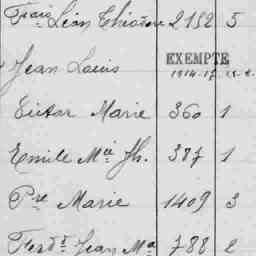 Frois Léon Théodore 2152 5
Jean Louis EXEMPTE
1914-17
Victor Marie 360 1
Emile Mie Jh. 387 1
Pre Marie 1409 3
Ferdt Jean Ma 788 2